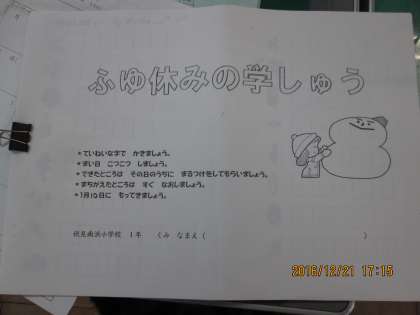 ふゆ休みの学しゅう
*ていねいな字で かきましょう。
*まい日 こつこつ しましょう。
*できたところは その日のうちに まるつけをしてもらいましょう。
*まちがえたところは すぐ なおしましょう。
*1月10日に もってきましょう。
伏見南浜小学校 1年 くみ なまえ( )
2018/12/21 17:15